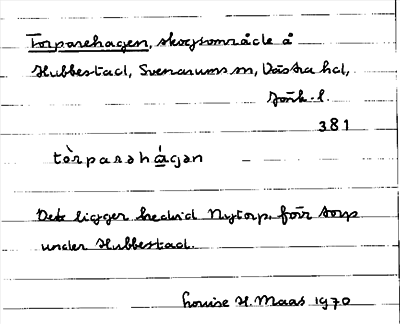 Torparehagen, skogsområde å
Hubbestad, Svenarums sn, Västra hd,
Jönk. l.
381
tòrparəhágən
Det ligger bredvid Nytorp, förr torp
under Hubbestad.
Louise H. Maas 1970